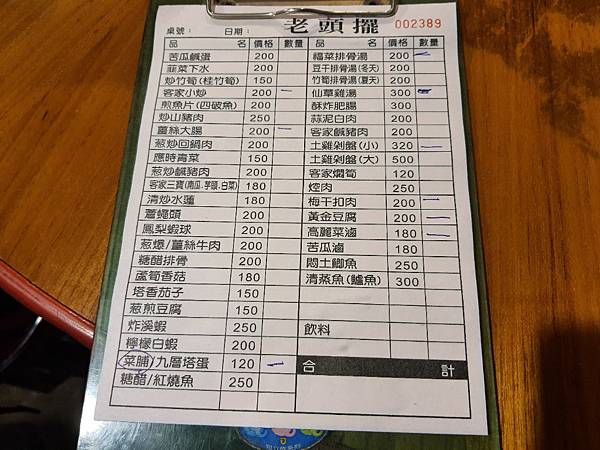 老頭擺 002389
桌號： 日期：
品名 價格 數量
苦瓜鹹蛋 200
韮菜下水 200
炒竹筍(桂竹筍) 150
客家小炒 200 一
煎魚片(四破魚) 200
炒山豬肉 250
薑絲大腸 200 一
葱炒回鍋肉 200
應時青菜 150
葱炒鹹豬肉 200
客家三寶(南瓜.芋頭.白菜) 180
清炒水蓮 180
蒼蠅頭 200
鳳梨蝦球 200
葱爆/薑絲牛肉 200
糖醋排骨 200
蘆筍香菇 180
塔香茄子 150
葱煎豆腐 150
炸溪蝦 250
檸檬白蝦 200
菜脯/九層塔蛋 120 一
糖醋/紅燒魚 250
品名 價格 數量
福菜排骨湯 200 一
豆干排骨湯(冬天) 200
竹筍排骨湯(夏天) 200
仙草雞湯 300
酥炸肥腸 300
蒜泥白肉 200
客家鹹豬肉 200
土雞剁盤(小) 320 一
土雞剁盤(大) 500
客家燜筍 120
焢肉 250
梅干扣肉 200 一
黃金豆腐 200 一
高麗菜滷 180 一
苦瓜滷 180
悶土鯽魚 250
清蒸魚(鱸魚) 300
飲料
合計